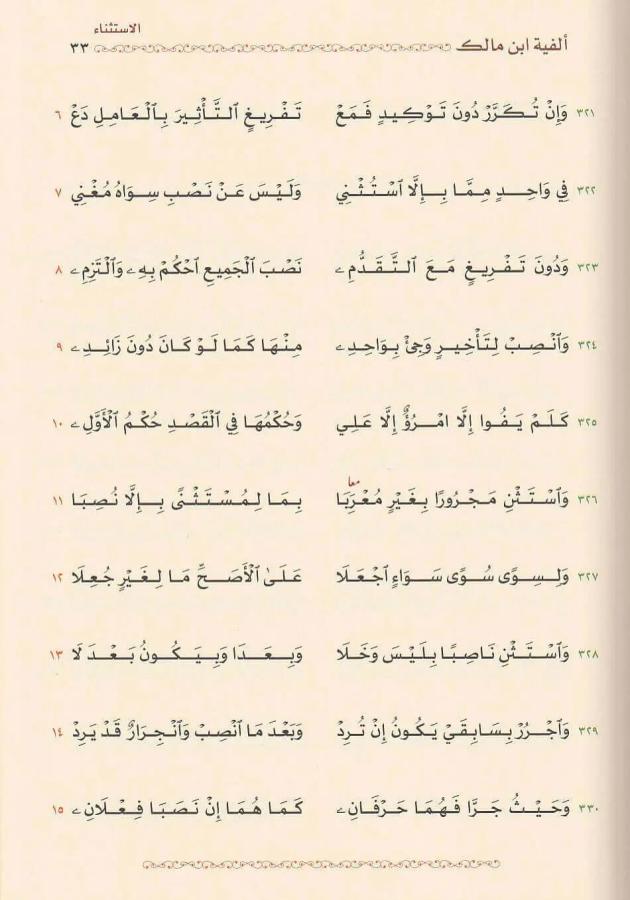 الاستثناء
ألفية ابن مالك ٣٣
٣٢١ وَإِنْ تُكَرَّرْ دُونَ تَوْكِيدٍ فَمَعْ تَفْرِيغٍ ٱلتَّأْثِيرَ بِٱلْعَامِلِ دَعْ ٦
٣٢٢ فِي وَاحِدٍ مِمَّا بِإِلَّا ٱسْتُثْنِي وَلَيْسَ عَنْ نَصْبِ سِوَاهُ مُغْنِي ٧
٣٢٣ وَدُونَ تَفْرِيغٍ مَعَ ٱلتَّقَدُّمِۦ نَصْبَ ٱلْجَمِيعِ ٱحْكُمْ بِهِۦ وَٱلْتَزِمِۦ ٨
٣٢٤ وَٱنْصِبْ لِتَأْخِيرٍ وَجِئْ بِوَاحِدِۦ مِنْهَا كَمَا لَوْ كَانَ دُونَ زَائِدِۦ ٩
٣٢٥ كَلَمْ يَفُوا إِلَّا امْرُؤٌ إِلَّا عَلِي وَحُكْمُهَا فِي ٱلْقَصْدِ حُكْمُ ٱلْأَوَّلِۦ ١٠
٣٢٦ وَٱسْتَثْنِ مَجْرُورًا بِغَيْرٍ مُعْرَِبَا معا بِمَا لِمُسْتَثْنًى بِإِلَّا نُصِبَا ١١
٣٢٧ وَلِسِوًى سُوًى سَوَاءٍ ٱجْعَلَا عَلَىٰ ٱلْأَصَحِّ مَا لِغَيْرٍ جُعِلَا ١٢
٣٢٨ وَٱسْتَثْنِ نَاصِبًا بِلَيْسَ وَخَلَا وَبِعَدَا وَبِيَكُونُ بَعْدَ لَا ١٣
٣٢٩ وَٱجْرُرْ بِسَابِقَيْ يَكُونُ إِنْ تُرِدْ وَبَعْدَ مَا ٱنْصِبْ وَٱنْجِرَارٌ قَدْ يَرِدْ ١٤
٣٣٠ وَحَيْثُ جَرَّا فَهُمَا حَرْفَانِۦ كَمَا هُمَا إِنْ نَصَبَا فِعْلَانِۦ ١٥